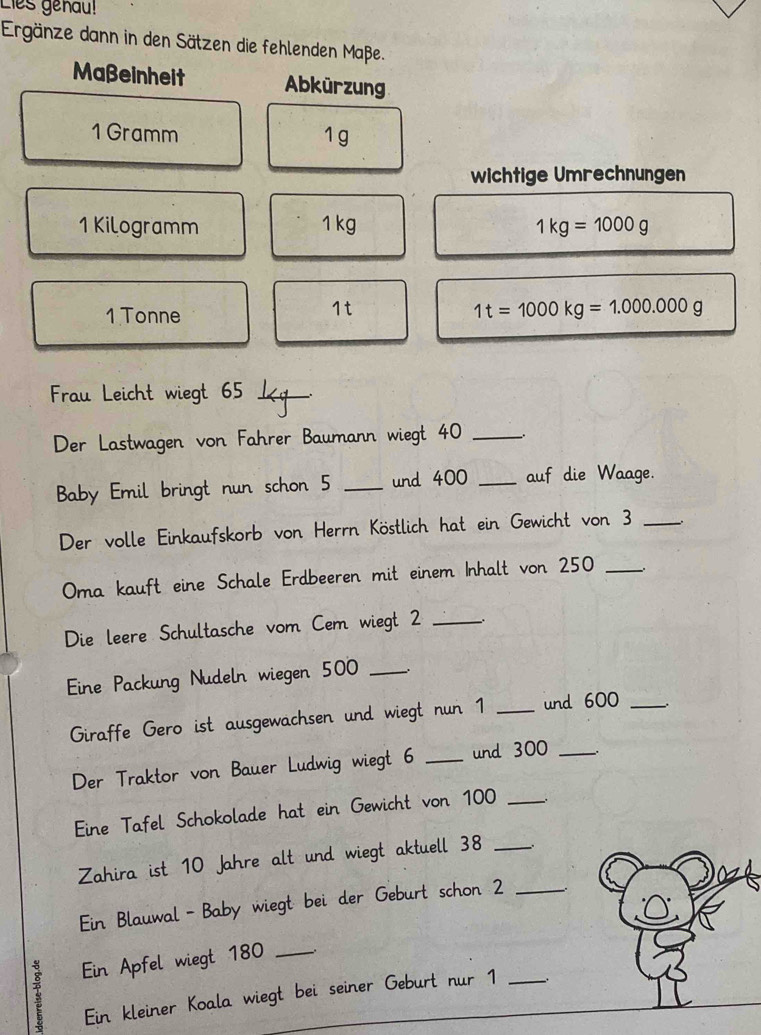 Lies genau!
Ergänze dann in den Sätzen die fehlenden Maße.
Maßeinheit Abkürzung
1 Gramm 1 g
wichtige Umrechnungen
1 Kilogramm 1 kg 1 kg = 1000 g
1 Tonne 1 t 1 t = 1000 kg = 1.000.000 g
Frau Leicht wiegt 65 kg.
Der Lastwagen von Fahrer Baumann wiegt 40 ____.
Baby Emil bringt nun schon 5 ____ und 400 ____ auf die Waage.
Der volle Einkaufskorb von Herrn Köstlich hat ein Gewicht von 3 ____.
Oma kauft eine Schale Erdbeeren mit einem Inhalt von 250 ____.
Die leere Schultasche vom Cem wiegt 2 ____.
Eine Packung Nudeln wiegen 500 ____.
Giraffe Gero ist ausgewachsen und wiegt nun 1 ____ und 600 ____.
Der Traktor von Bauer Ludwig wiegt 6 ____ und 300 ____.
Eine Tafel Schokolade hat ein Gewicht von 100 ____.
Zahira ist 10 Jahre alt und wiegt aktuell 38 ____.
Ein Blauwal - Baby wiegt bei der Geburt schon 2 ____.
Ein Apfel wiegt 180 ____.
Ein kleiner Koala wiegt bei seiner Geburt nur 1 ____.
ideenreise-blog.de